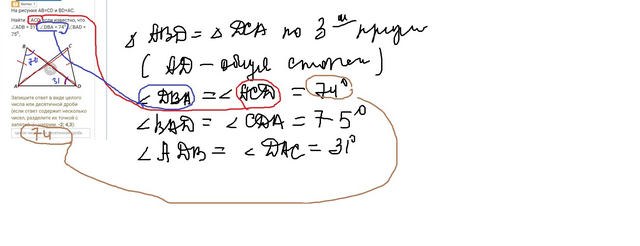 На рисунке AB=CD и BD=AC.
Найти ACD, если известно, что
∠ADB = 31°, ∠DBA = 74°, ∠BAD =
75°.
B
C
74
31
A
D
Запишите ответ в виде целого
числа или десятичной дроби
(если ответ содержит несколько
чисел, разделите их точкой с
запятой, например, -2; 4,3)
74
Δ ABD = Δ DCA по 3
(AD - общая сторона)
∠ DBA = ∠ ACD = 74°
∠ BAD = ∠ CDA = 75°
∠ ADB = ∠ DAC = 31°